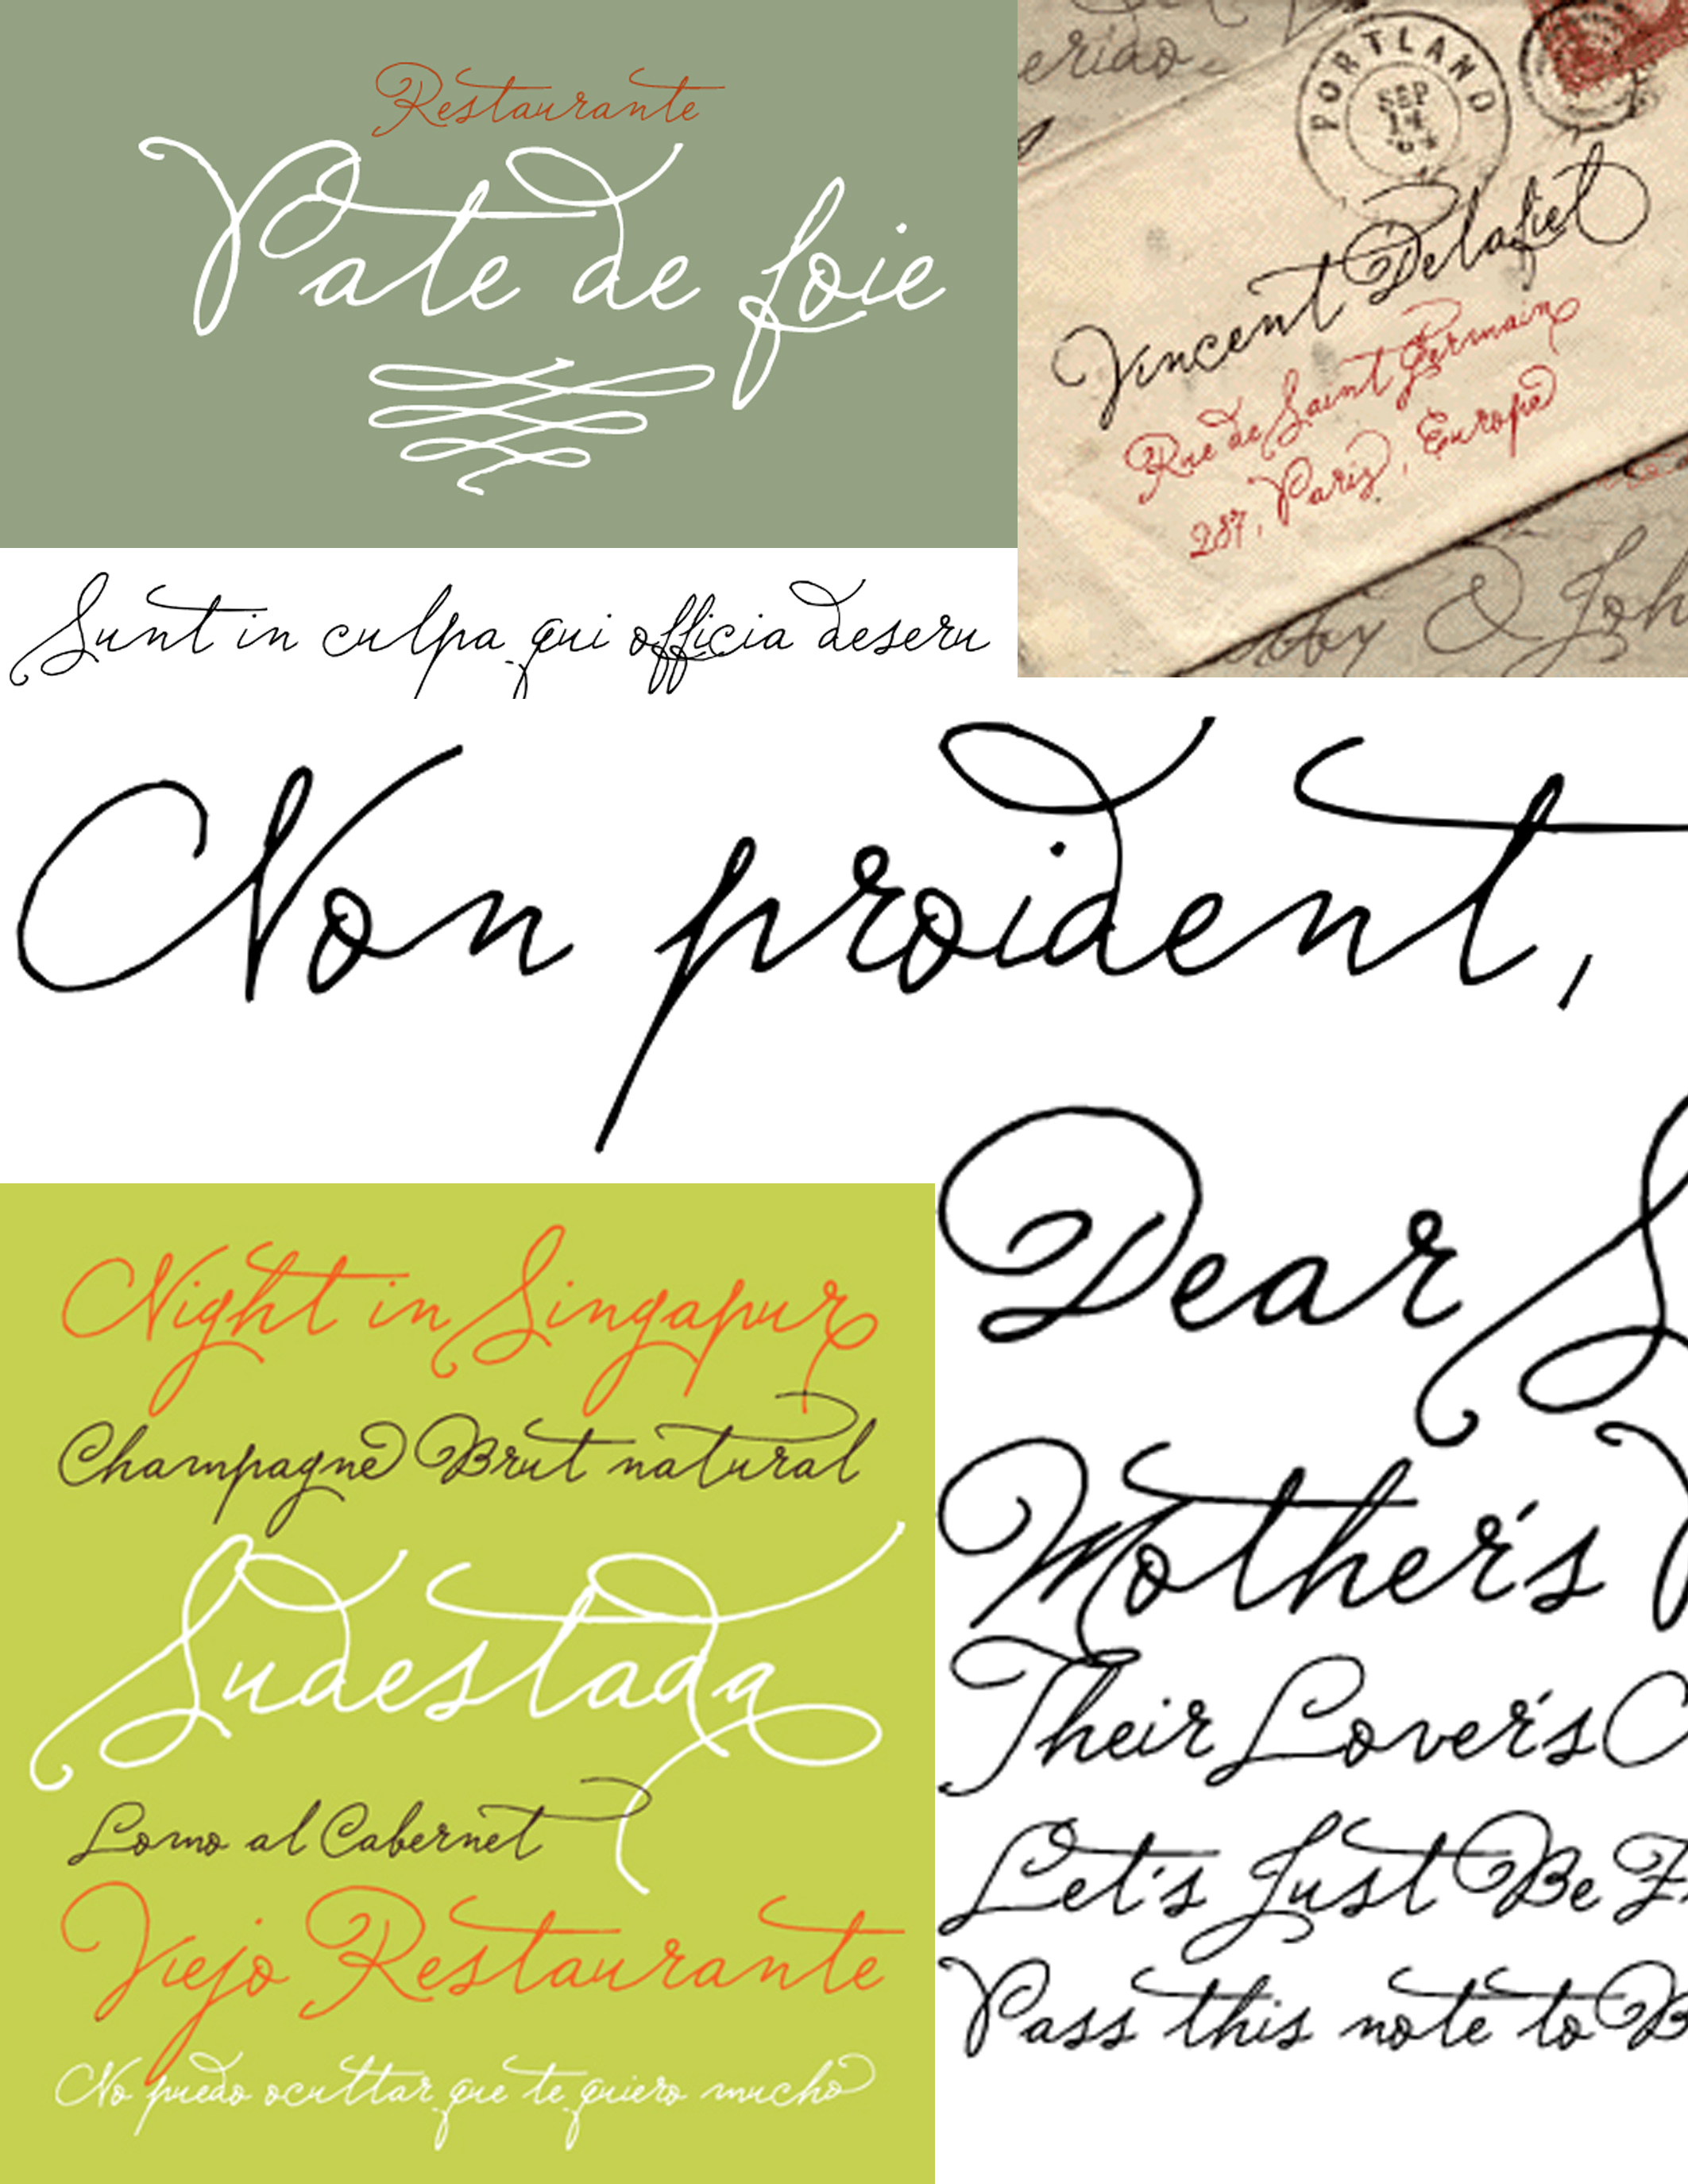 Restaurante
Pate de foie
eriao
PORTLAND
SEP
14
Vincent Delafiet
Rue de Saint Germain
287, Paris, Europe
& Joh
Sunt in culpa qui officia deseru
Non proident,
Dear S
Mother's
Their Lover's C
Let's Just Be F
Pass this note to B
Night in Singapur
Champagne Brut natural
Sudestada
Lomo al Cabernet
Viejo Restaurante
No puedo ocultar que te quiero mucho